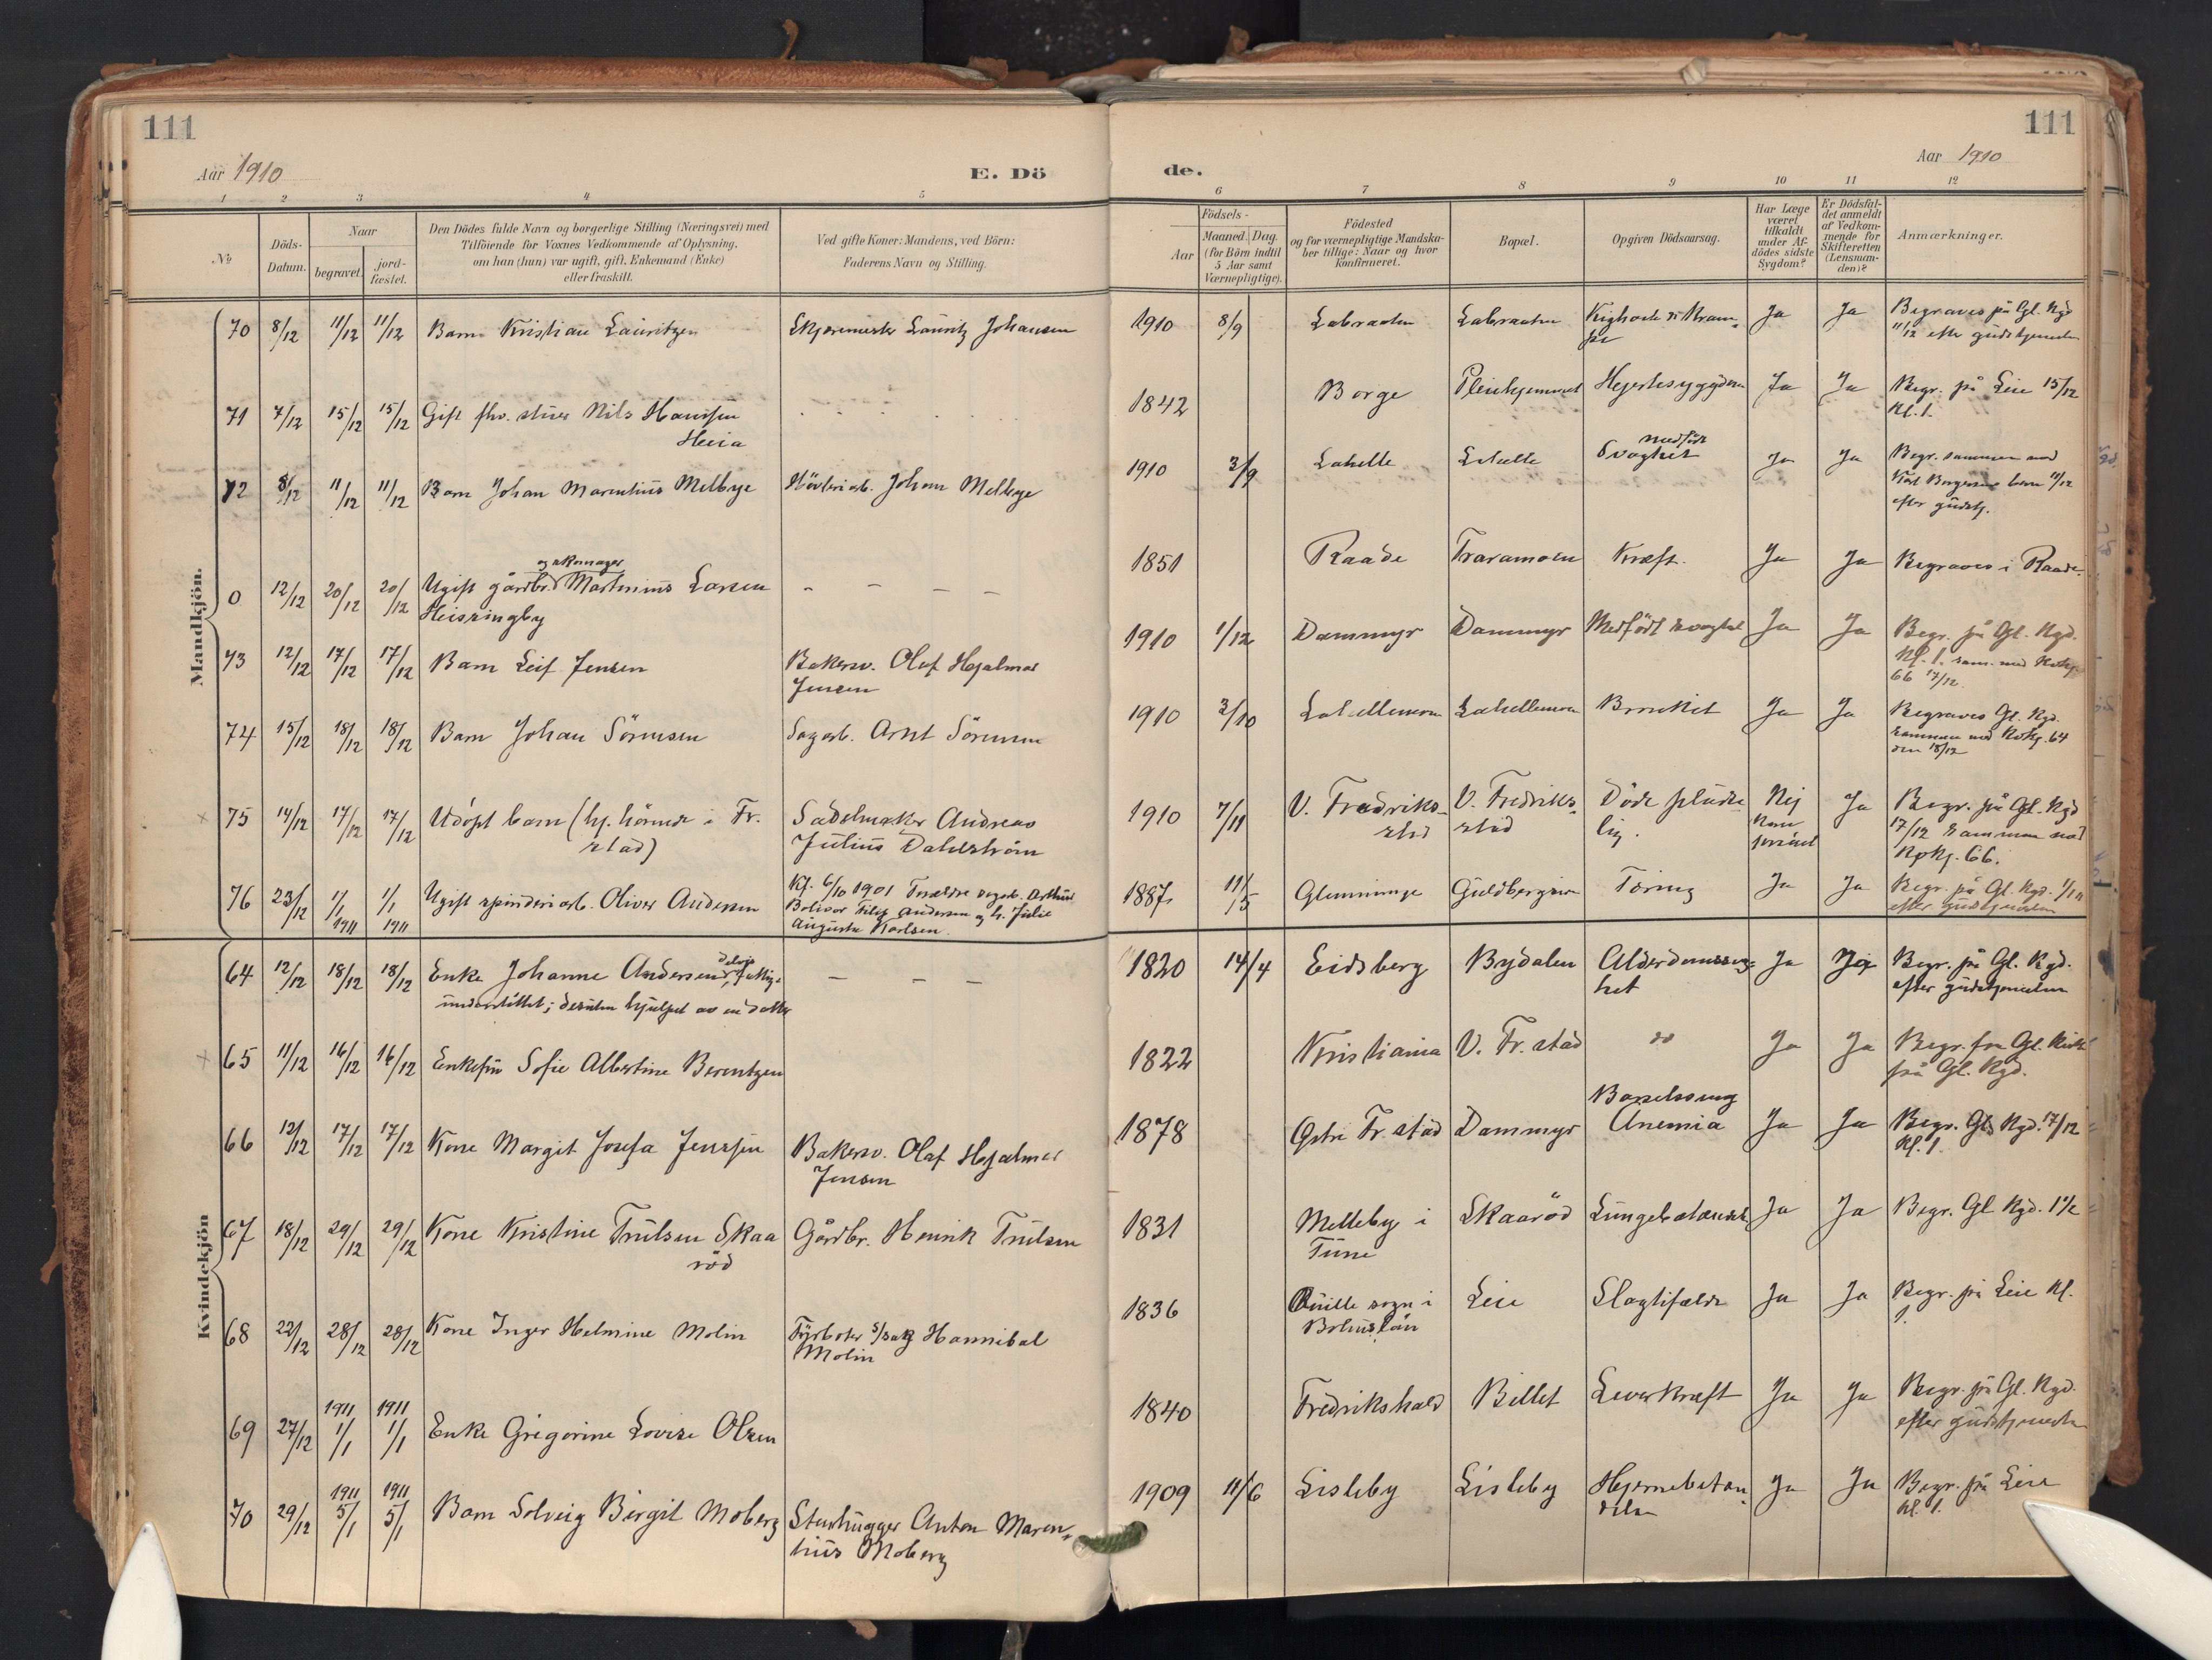 111
Aar 1910
E. Dö
1 2 3 4 5
No
Döds-
Datum.
Naar
begravet.
jord-
fæstet.
Den Dödes fulde Navn og borgerlige Stilling (Næringsvei) med
Tilföiende for Voxnes Vedkommende af Oplysning,
om han (hun) var ugift, gift, Enkemand (Enke)
eller fraskilt.
Ved gifte Koner: Mandens, ved Börn:
Faderens Navn og Stilling.
Mandkjön.
70 8/12 11/12 11/12 Barn Kristian Lauritzen Skjæremester Lauritz Johansen
71 7/12 15/12 15/12 Gift fhv. stuer Nils Hansen
Heia
72 8/12 11/12 11/12 Barn Johan Marentius Melbye Hövleriarb. Johan Melbye
og skomager
0 12/12 20/12 20/12 Ugift gårdbr. Martinius Larsen - - -
73 12/12 17/12 17/12 Barn Leif Jensen Bakersv. Olaf Hjalmar
Jensen
74 15/12 18/12 18/12 Barn Johan Sörensen Sagarb. Arnt Sörensen
75 14/12 17/12 17/12 Udöpt barn (hj. hörende i Fr.
stad)
Sadelmaker Andreas
Julius Dahlström
76 23/12 1/1 1911 1/1 1911 Ugift spinderiarb. Oliver Andersen
Kf. 6/10 1901 Forældre sagarb. Arthur
Bolivar Filip Andersen og h. Julie
Augusta Karlsen.
Kvindekjön
64 12/12 18/12 18/12 Enke Johanne Andersen, delvis fattig-
understöttet; desuten hjulpet av en datter
— — —
65 11/12 16/12 16/12 Enkefru Sofie Albertine Berentzen
66 12/12 17/12 17/12 Kone Margit Josefa Jensen Bakersv. Olaf Hjalmar
Jensen
67 18/12 29/12 29/12 Kone Kristine Trulsen Skaa
röd
Gårdbr. Henrik Trulsen
68 22/12 28/12 28/12 Kone Inger Helmine Molin Fyrböter Hannibal
Molin
69 27/12 1911 1/1 1911 1/1 Enke Gregorine Lovise Olsen
70 29/12 1911 5/1 1911 5/1 Barn Solveig Birgit Moberg Stenhugger Anton Maren-
tius Moberg
111
Aar 1910
de.
6 7 8 9 10 11 12
Födsels-
Aar
Maaned. Dag.
(for Börn indtil
5 Aar samt
Værnepligtige).
Födested
og for værnepligtige Mandska-
ber tillige: Naar og hvor
Konfirmeret.
Bopæl.
Opgiven Dödsaarsag.
Har Læge
været
tilkaldt
under Af-
dödes sidste
Sygdom?
Er Dödsfal-
det anmeldt
af Vedkom-
mende for
Skifteretten
(Lensman-
den)?
Anmærkninger.
1910 8/9 Labraaten Labraaten Kighoste & Kram-
pe
Ja Ja Begraves på Gl. Kgd
11/12 efter gudstjenesten
1842 Borge Pleiehjemmet Hjertesygdom Ja Ja Begr. på Leie 15/12
Kl. 1.
1910 3/9 Lahelle Lahelle medfödt
Svaghet
Ja Ja Begr. sammen med
barn 11/12
efter gudstj.
1851 Raade Traramoen Kræft. Ja Ja Begraves i Raade.
1910 1/12 Dammyr Dammyr Medfödt svaghet Ja Ja Begr. på Gl. Kgd.
Kl. 1. sam. med Kvkj.
66 17/12.
1910 3/10 Lahellemoen Lahellemoen Bronkit Ja Ja Begraves Gl. Kgd.
sammen med Kvkj. 64
den 18/12
1910 7/11 V. Fredriks-
stad
V. Fredriks-
stad
Döde pludse-
lig.
Nej
Ja Begr. på Gl. Kgd
17/12 sammen med
Kvkj. 66.
1887 11/5 Glemminge Guldbergsien Tæring Ja Ja Begr. på Gl. Kgd. 1/1 11
efter gudstjenesten
1820 14/4 Eidsberg Bydalen Alderdomssvag-
het
Ja Ja Begr. på Gl. Kgd.
efter gudstjenesten
1822 Kristiania V. Fr.stad do Ja Ja Begr. fra Gl. Kirke
på Gl. Kgd.
1878 Östre Fr.stad Dammyr Barselseng
Anemia
Ja Ja Begr. Gl. Kgd. 17/12
Kl. 1.
1831 Melleby i
Tune
Skaaröd Lungebetændelse Ja Ja Begr. Gl Kgd. 1½
1836 Quille sogn i
Bohuslän
Leie Slagtilfælde Ja Ja Begr. på Leie Kl.
1.
1840 Fredrikshald Billet Leverkræft Ja Ja Begr. på Gl. Kgd.
efter gudstjenesten
1909 11/6 Lisleby Lisleby Hjernebetæn-
delse
Ja Ja Begr. på Leie
Kl. 1.